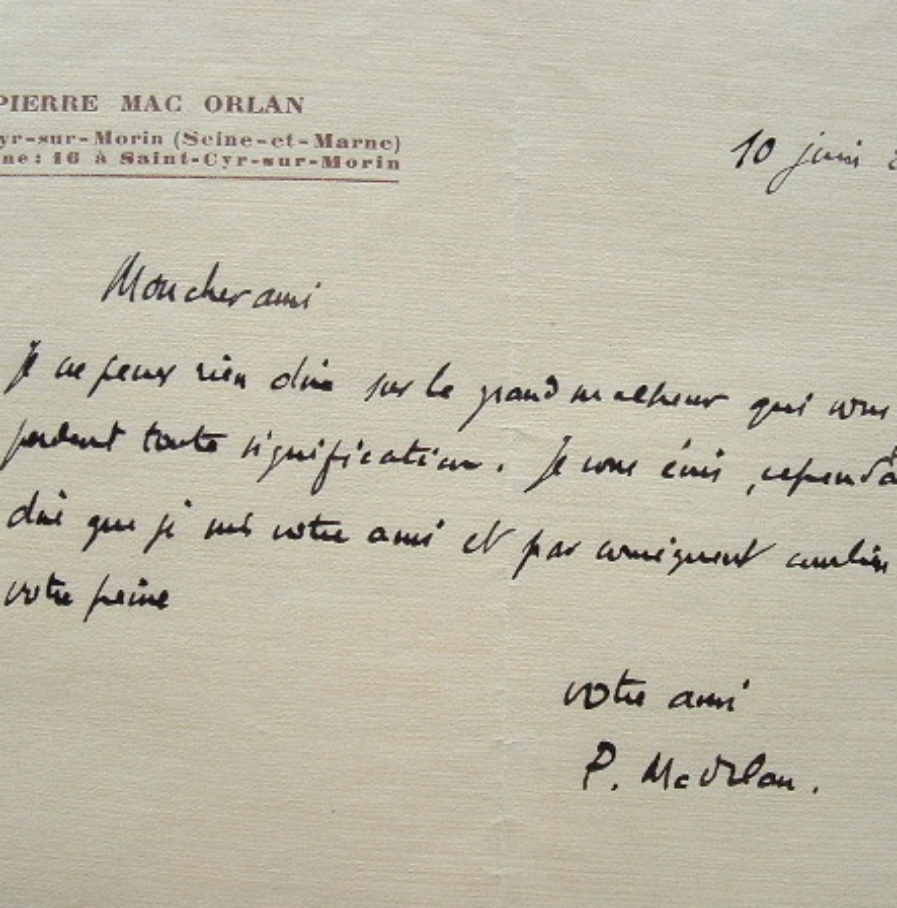 PIERRE MAC ORLAN
yr-sur-Morin (Seine-et-Marne)
ne: 16 à Saint-Cyr-sur-Morin
10 juin
Mon cher ami
Je ne peux rien dire sur le grand malheur qui vous
perdent toute signification. Je vous écris, cependa
dire que je suis votre ami et par conséquent combien
votre peine
votre ami
P. Mac Orlan.